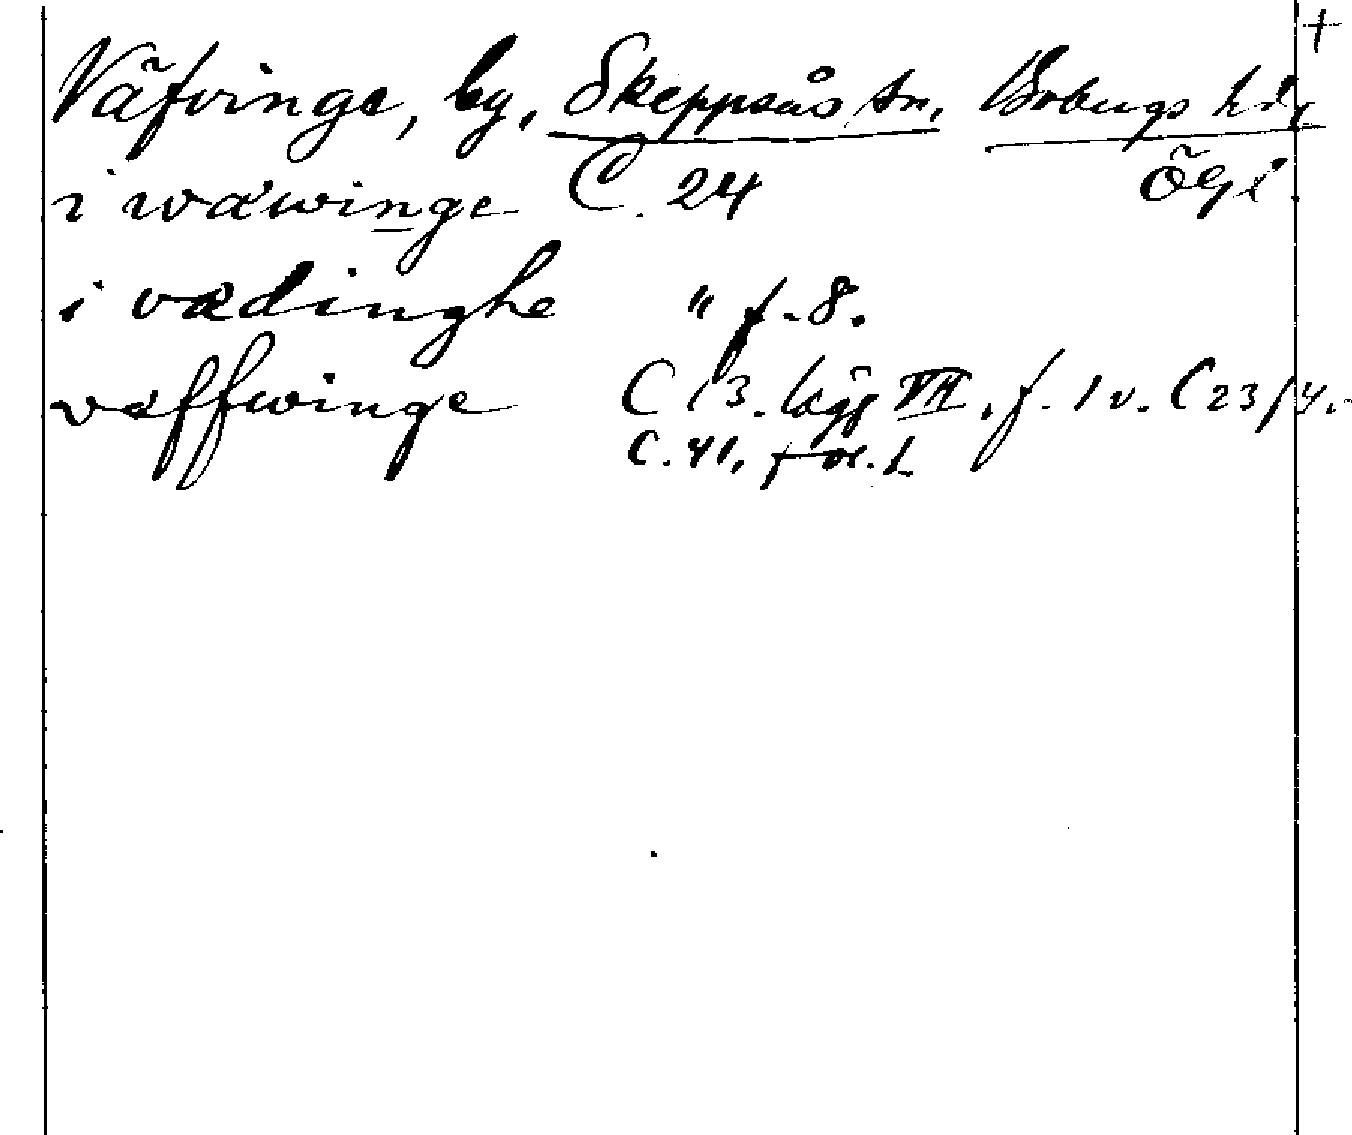 +
Väfvinge, by, Skeppsås sn, Bobergs hd,
i wäwinge C. 24 Ögl.
i vædinghe " f. 8.
væffwinge C 13. lägg VII, f. 1 v. C 23/4.
C. 41, fol. 1